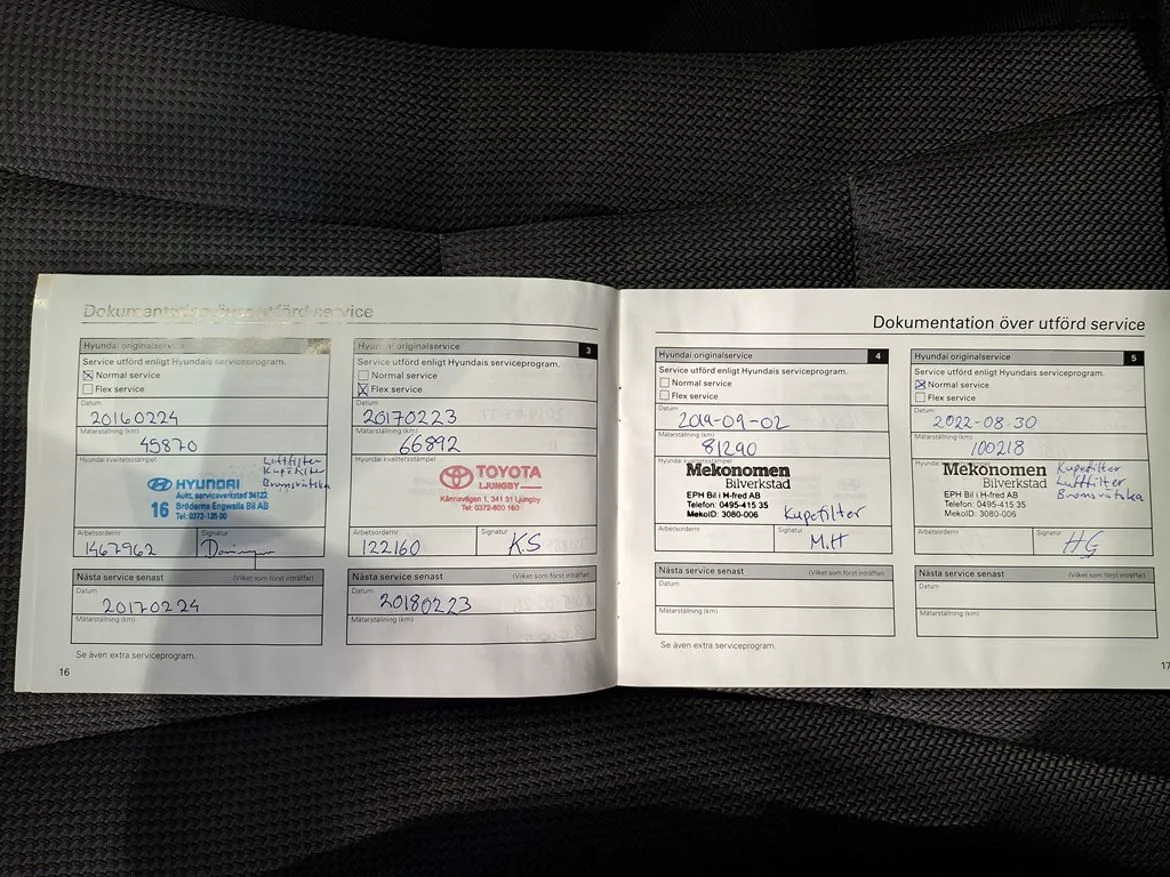 Dokumentation över utförd service
Hyundai originalservice
Service utförd enligt Hyundais serviceprogram.
Normal service
Flex service
Datum
20160224
Mätarställning (km)
45870
Hyundai kvalitetsstämpel
Luftfilter
Kupefilter
Bromsvätska
HYUNDAI
Aukt. serviceverkstad 34122
16 Bröderna Engwalls Bil AB
Tel: 0372-135 00
Arbetsordernr
Signatur
1467962
Nästa service senast (Vilket som först inträffar)
Datum
20170224
Mätarställning (km)
Se även extra serviceprogram.
16
Hyundai originalservice 3
Service utförd enligt Hyundais serviceprogram.
Normal service
Flex service
Datum
20170223
Mätarställning (km)
66892
Hyundai kvalitetsstämpel
TOYOTA
LJUNGBY
Kånnavägen 1, 341 31 Ljungby
Tel: 0372-800 160
Arbetsordernr
Signatur
122160
KS
Nästa service senast (Vilket som först inträffar)
Datum
20180223
Mätarställning (km)
Dokumentation över utförd service
Hyundai originalservice 4
Service utförd enligt Hyundais serviceprogram.
Normal service
Flex service
Datum
2019-09-02
Mätarställning (km)
81290
Hyundai kvalitetsstämpel
Mekonomen
Bilverkstad
EPH Bil i H-fred AB
Telefon: 0495-415 35
MekoID: 3080-006
Kupefilter
Arbetsordernr
Signatur
M.H
Nästa service senast (Vilket som först inträffar)
Datum
Mätarställning (km)
Se även extra serviceprogram.
Hyundai originalservice 5
Service utförd enligt Hyundais serviceprogram.
Normal service
Flex service
Datum
2022-08-30
Mätarställning (km)
100218
Hyundai kvalitetsstämpel
Mekonomen
Bilverkstad
EPH Bil i H-fred AB
Telefon: 0495-415 35
MekoID: 3080-006
Kupefilter
Luftfilter
Bromsvätska
Arbetsordernr
Signatur
HG
Nästa service senast (Vilket som först inträffar)
Datum
Mätarställning (km)
17